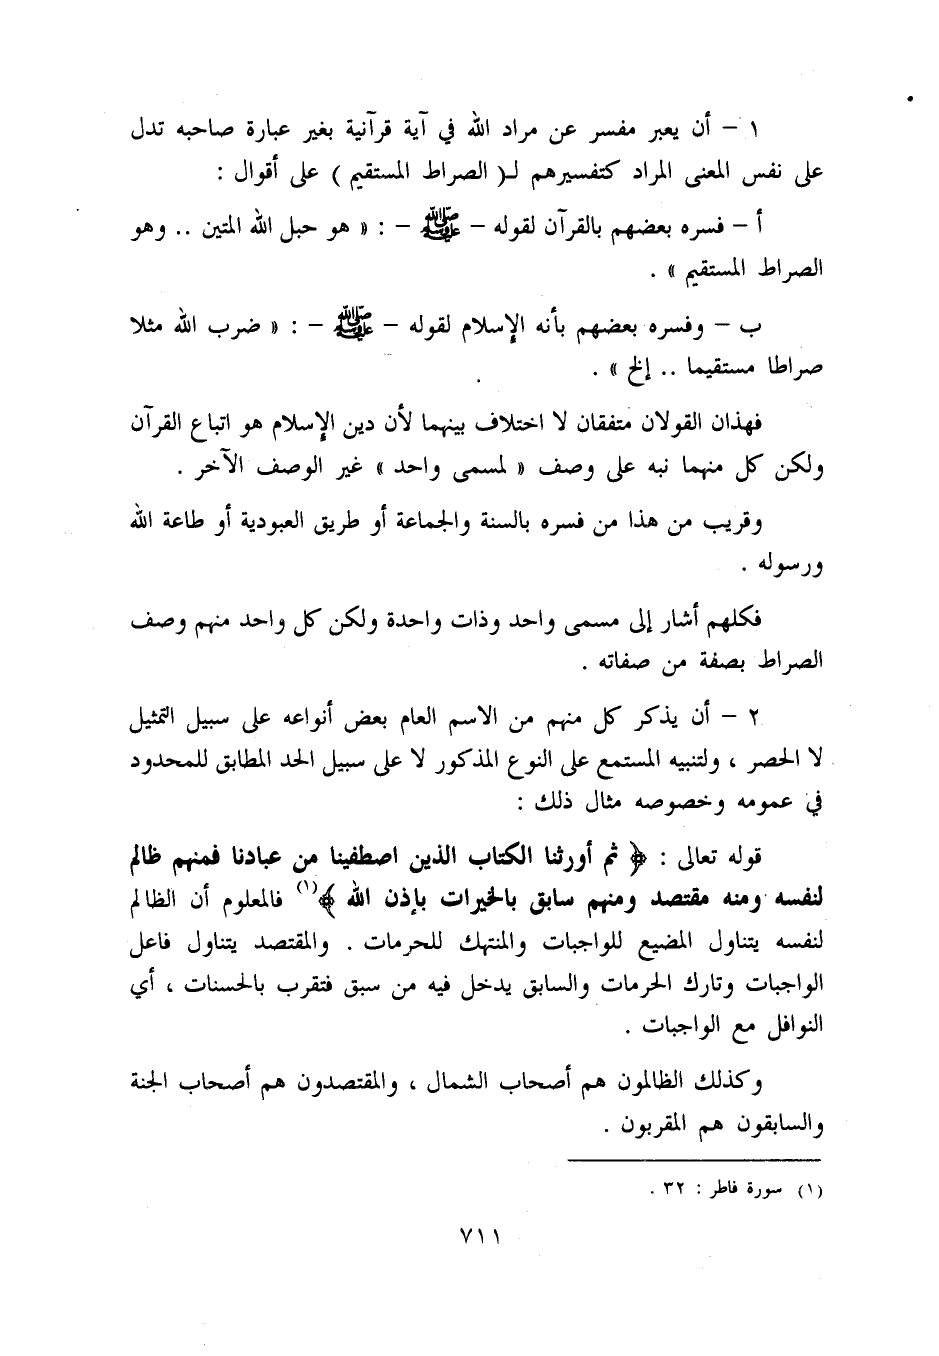 ١ – أن يعبر مفسر عن مراد الله في آية قرآنية بغير عبارة صاحبه تدل
على نفس المعنى المراد كتفسيرهم لـ( الصراط المستقيم ) على أقوال :
أ – فسره بعضهم بالقرآن لقوله – ﷺ – : « هو حبل الله المتين .. وهو
الصراط المستقيم » .
ب – وفسره بعضهم بأنه الإسلام لقوله – ﷺ – : « ضرب الله مثلا
صراطا مستقيما .. إلخ » .
فهذان القولان متفقان لا اختلاف بينهما لأن دين الإسلام هو اتباع القرآن
ولكن كل منهما نبه على وصف « لمسمى واحد » غير الوصف الآخر .
وقريب من هذا من فسره بالسنة والجماعة أو طريق العبودية أو طاعة الله
ورسوله .
فكلهم أشار إلى مسمى واحد وذات واحدة ولكن كل واحد منهم وصف
الصراط بصفة من صفاته .
٢ – أن يذكر كل منهم من الاسم العام بعض أنواعه على سبيل التمثيل
لا الحصر ، ولتنبيه المستمع على النوع المذكور لا على سبيل الحد المطابق للمحدود
في عمومه وخصوصه مثال ذلك :
قوله تعالى : ﴿ ثم أورثنا الكتاب الذين اصطفينا من عبادنا فمنهم ظالم
لنفسه ومنه مقتصد ومنهم سابق بالخيرات بإذن الله ﴾(١) فالمعلوم أن الظالم
لنفسه يتناول المضيع للواجبات والمنتهك للحرمات . والمقتصد يتناول فاعل
الواجبات وتارك الحرمات والسابق يدخل فيه من سبق فتقرب بالحسنات ، أي
النوافل مع الواجبات .
وكذلك الظالمون هم أصحاب الشمال ، والمقتصدون هم أصحاب الجنة
والسابقون هم المقربون .
(١) سورة فاطر : ٣٢ .
٧١١